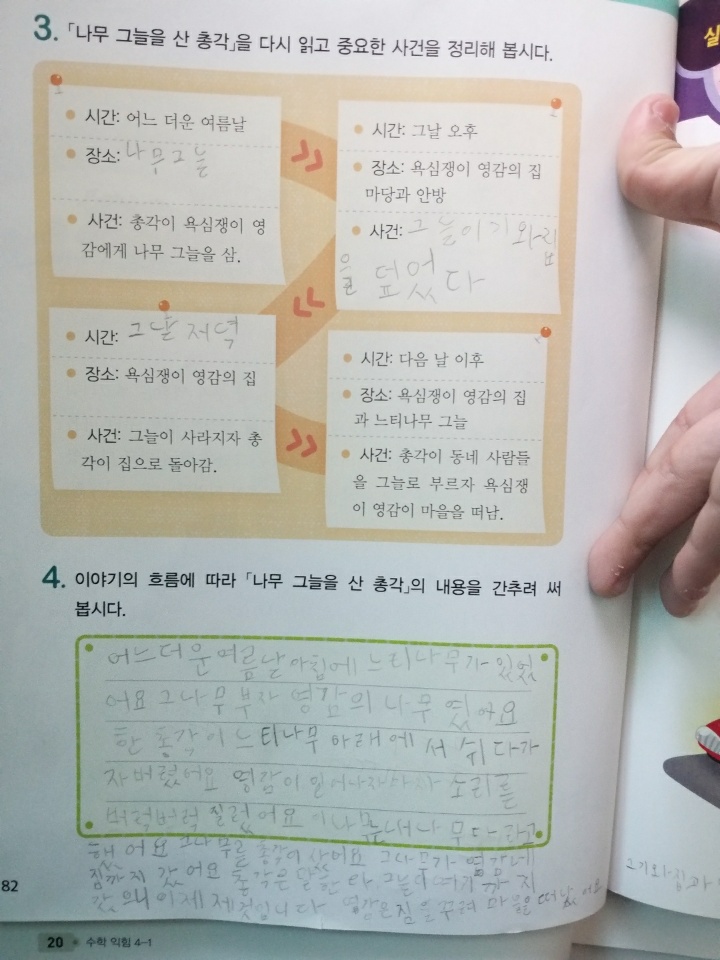 3. 「나무 그늘을 산 총각」을 다시 읽고 중요한 사건을 정리해 봅시다.
시간: 어느 더운 여름날
장소: 나무그늘
사건: 총각이 욕심쟁이 영
감에게 나무 그늘을 삼.
시간: 그날 오후
장소: 욕심쟁이 영감의 집
마당과 안방
사건: 그늘이 기와집
을 덮었다
시간: 그날 저녁
장소: 욕심쟁이 영감의 집
사건: 그늘이 사라지자 총
각이 집으로 돌아감.
시간: 다음 날 이후
장소: 욕심쟁이 영감의 집
과 느티나무 그늘
사건: 총각이 동네 사람들
을 그늘로 부르자 욕심쟁
이 영감이 마을을 떠남.
4. 이야기의 흐름에 따라 「나무 그늘을 산 총각」의 내용을 간추려 써
봅시다.
어느더운여름날 아침에 느티나무가 있었
어요 그나무 부자 영감의 나무 였어요
한 총각이 느티나무 아래에서 쉬다가
자버렸어요 영감이 일어나자마자 소리를
버럭버럭 질렀어요 이나무 내나무다라고
했어요 그나무를 총각이 샀어요
집까지 갔어요 총각은 그늘이 여기까지
영감은 짐을 꾸려 마을을 떠났어요
82
20 수학 익힘 4-1
실
그기와집과